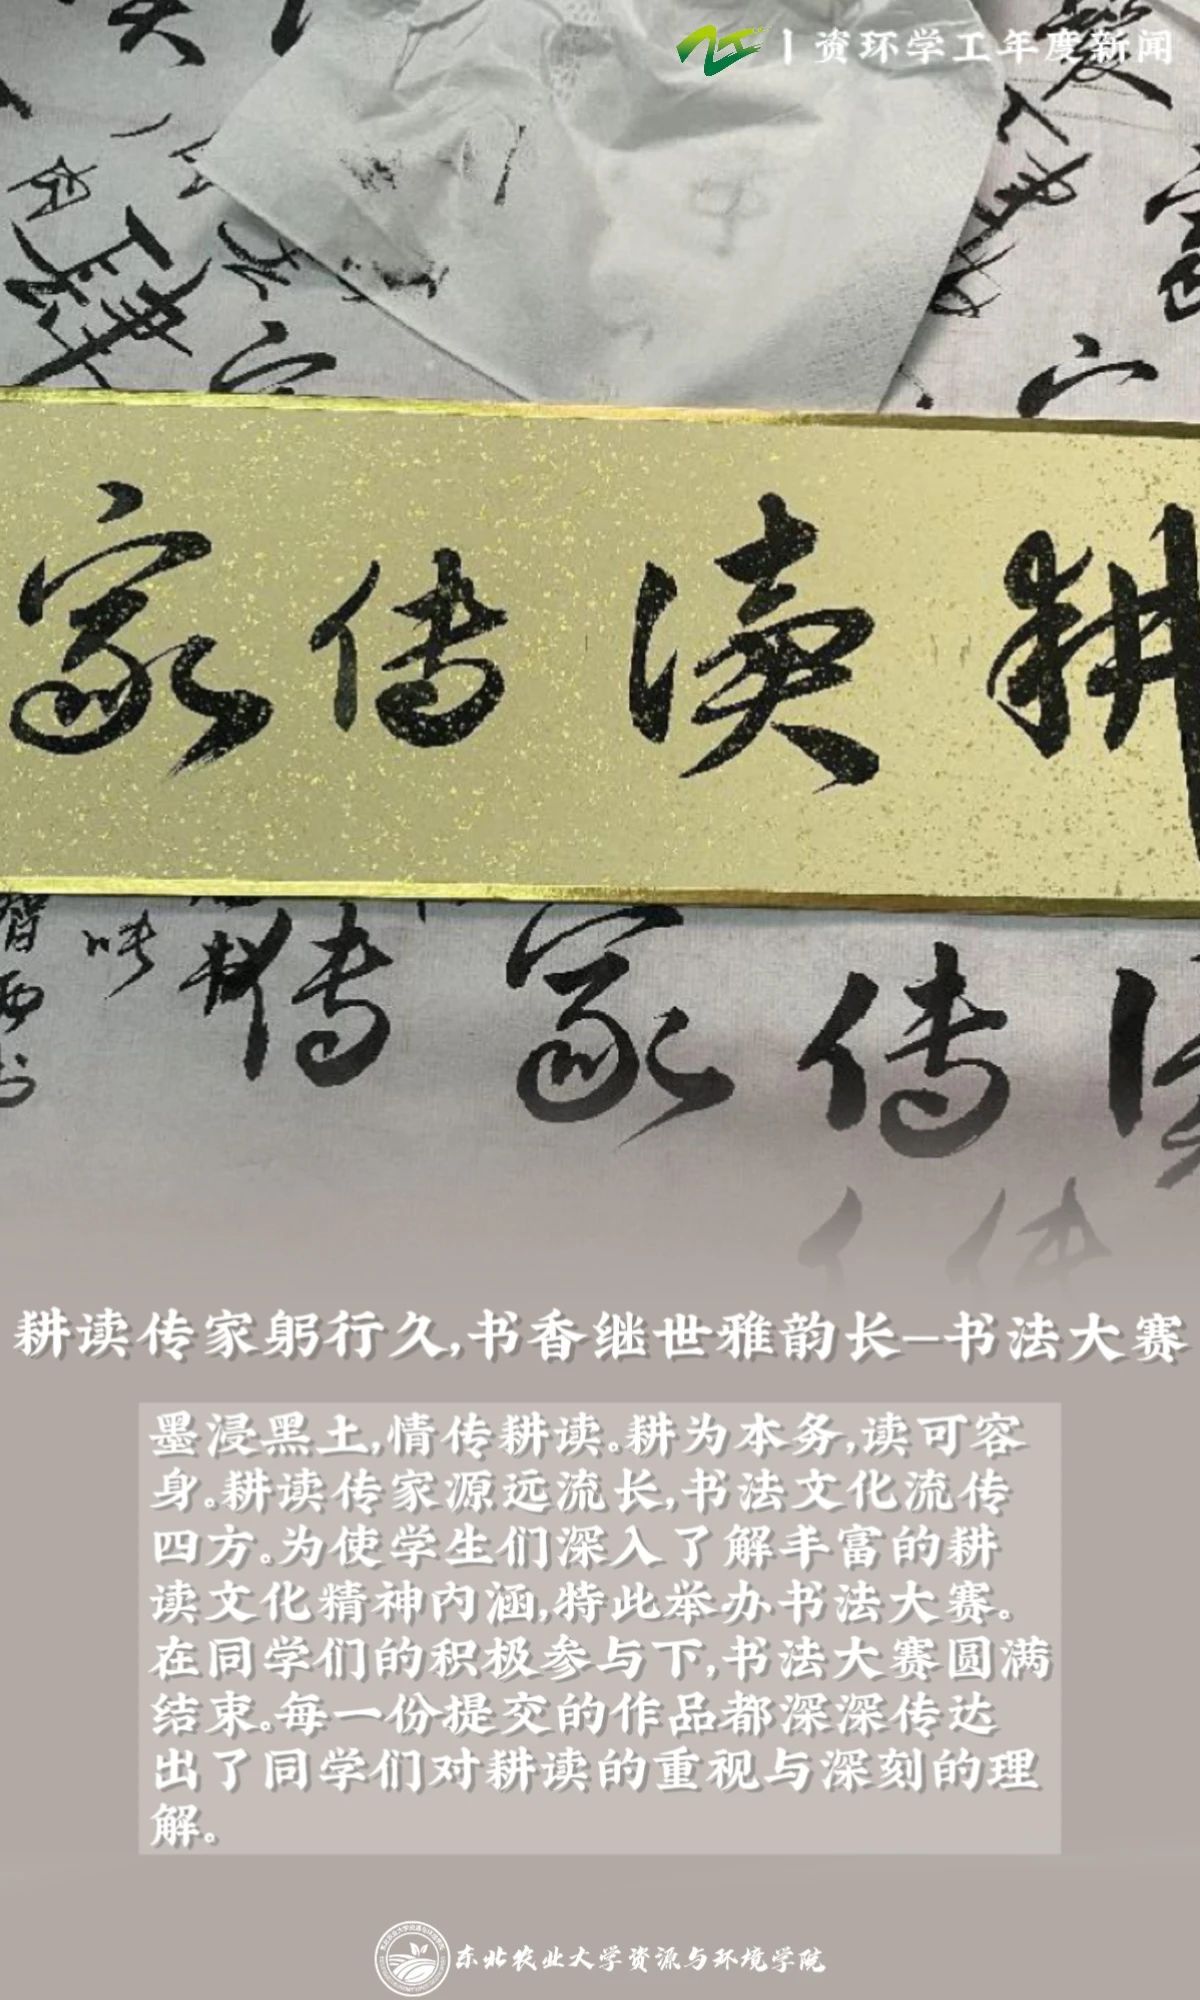 丨资环学工年度新闻
家传读耕
传
家传
耕读传家躬行久,书香继世雅韵长—书法大赛
墨浸黑土,情传耕读。耕为本务,读可容
身。耕读传家源远流长,书法文化流传
四方。为使学生们深入了解丰富的耕
读文化精神内涵,特此举办书法大赛。
在同学们的积极参与下,书法大赛圆满
结束。每一份提交的作品都深深传达
出了同学们对耕读的重视与深刻的理
解。
东北农业大学资源与环境学院